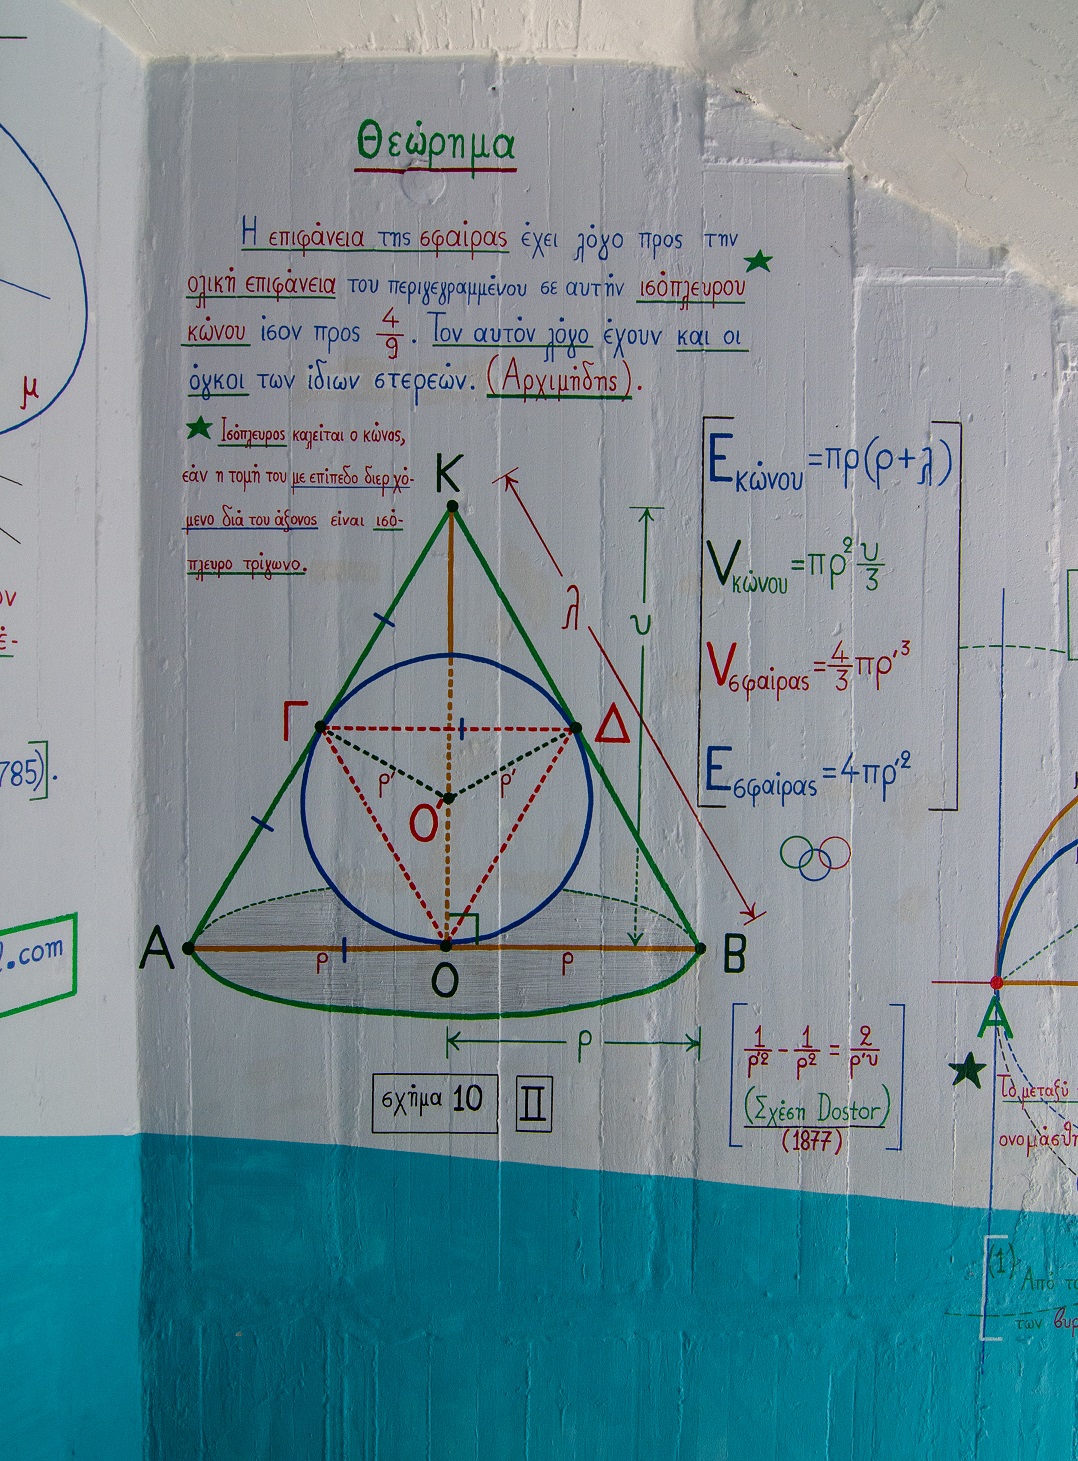 Θεώρημα
Η επιφάνεια της σφαίρας έχει λόγο προς την
ολική επιφάνεια του περιγεγραμμένου σε αυτήν ισόπλευρου
κώνου ίσον προς 4/9. Τον αυτόν λόγο έχουν και οι
όγκοι των ίδιων στερεών. (Αρχιμήδης).
Ισόπλευρος καλείται ο κώνος,
εάν η τομή του με επίπεδο διερχό-
μενο διά του άξονος είναι ισό-
πλευρο τρίγωνο.
Κ
λ
υ
Γ
Δ
ρ' ρ'
Ο'
Α
Β
ρ ρ
Ο
ρ
σχήμα 10 II
Εκώνου=πρ(ρ+λ)
Vκώνου=πρ²υ/3
Vσφαίρας=4/3πρ'³
Εσφαίρας=4πρ'²
1/ρ'² - 1/ρ² = 2/ρ'υ
(Σχέση Dostor)
(1877)
μ
ον
έ-
785)].
.com
Α
Το μεταξύ
ονομάσθη
(1)
Από το
των